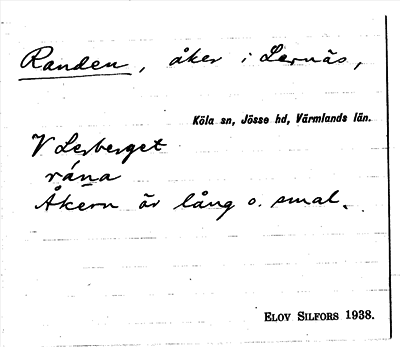 Randen, åker i Lernäs,
Köla sn, Jösse hd, Värmlands län.
V Lerberget
rána
Åkern är lång o. smal.
ELOV SILFORS 1938.